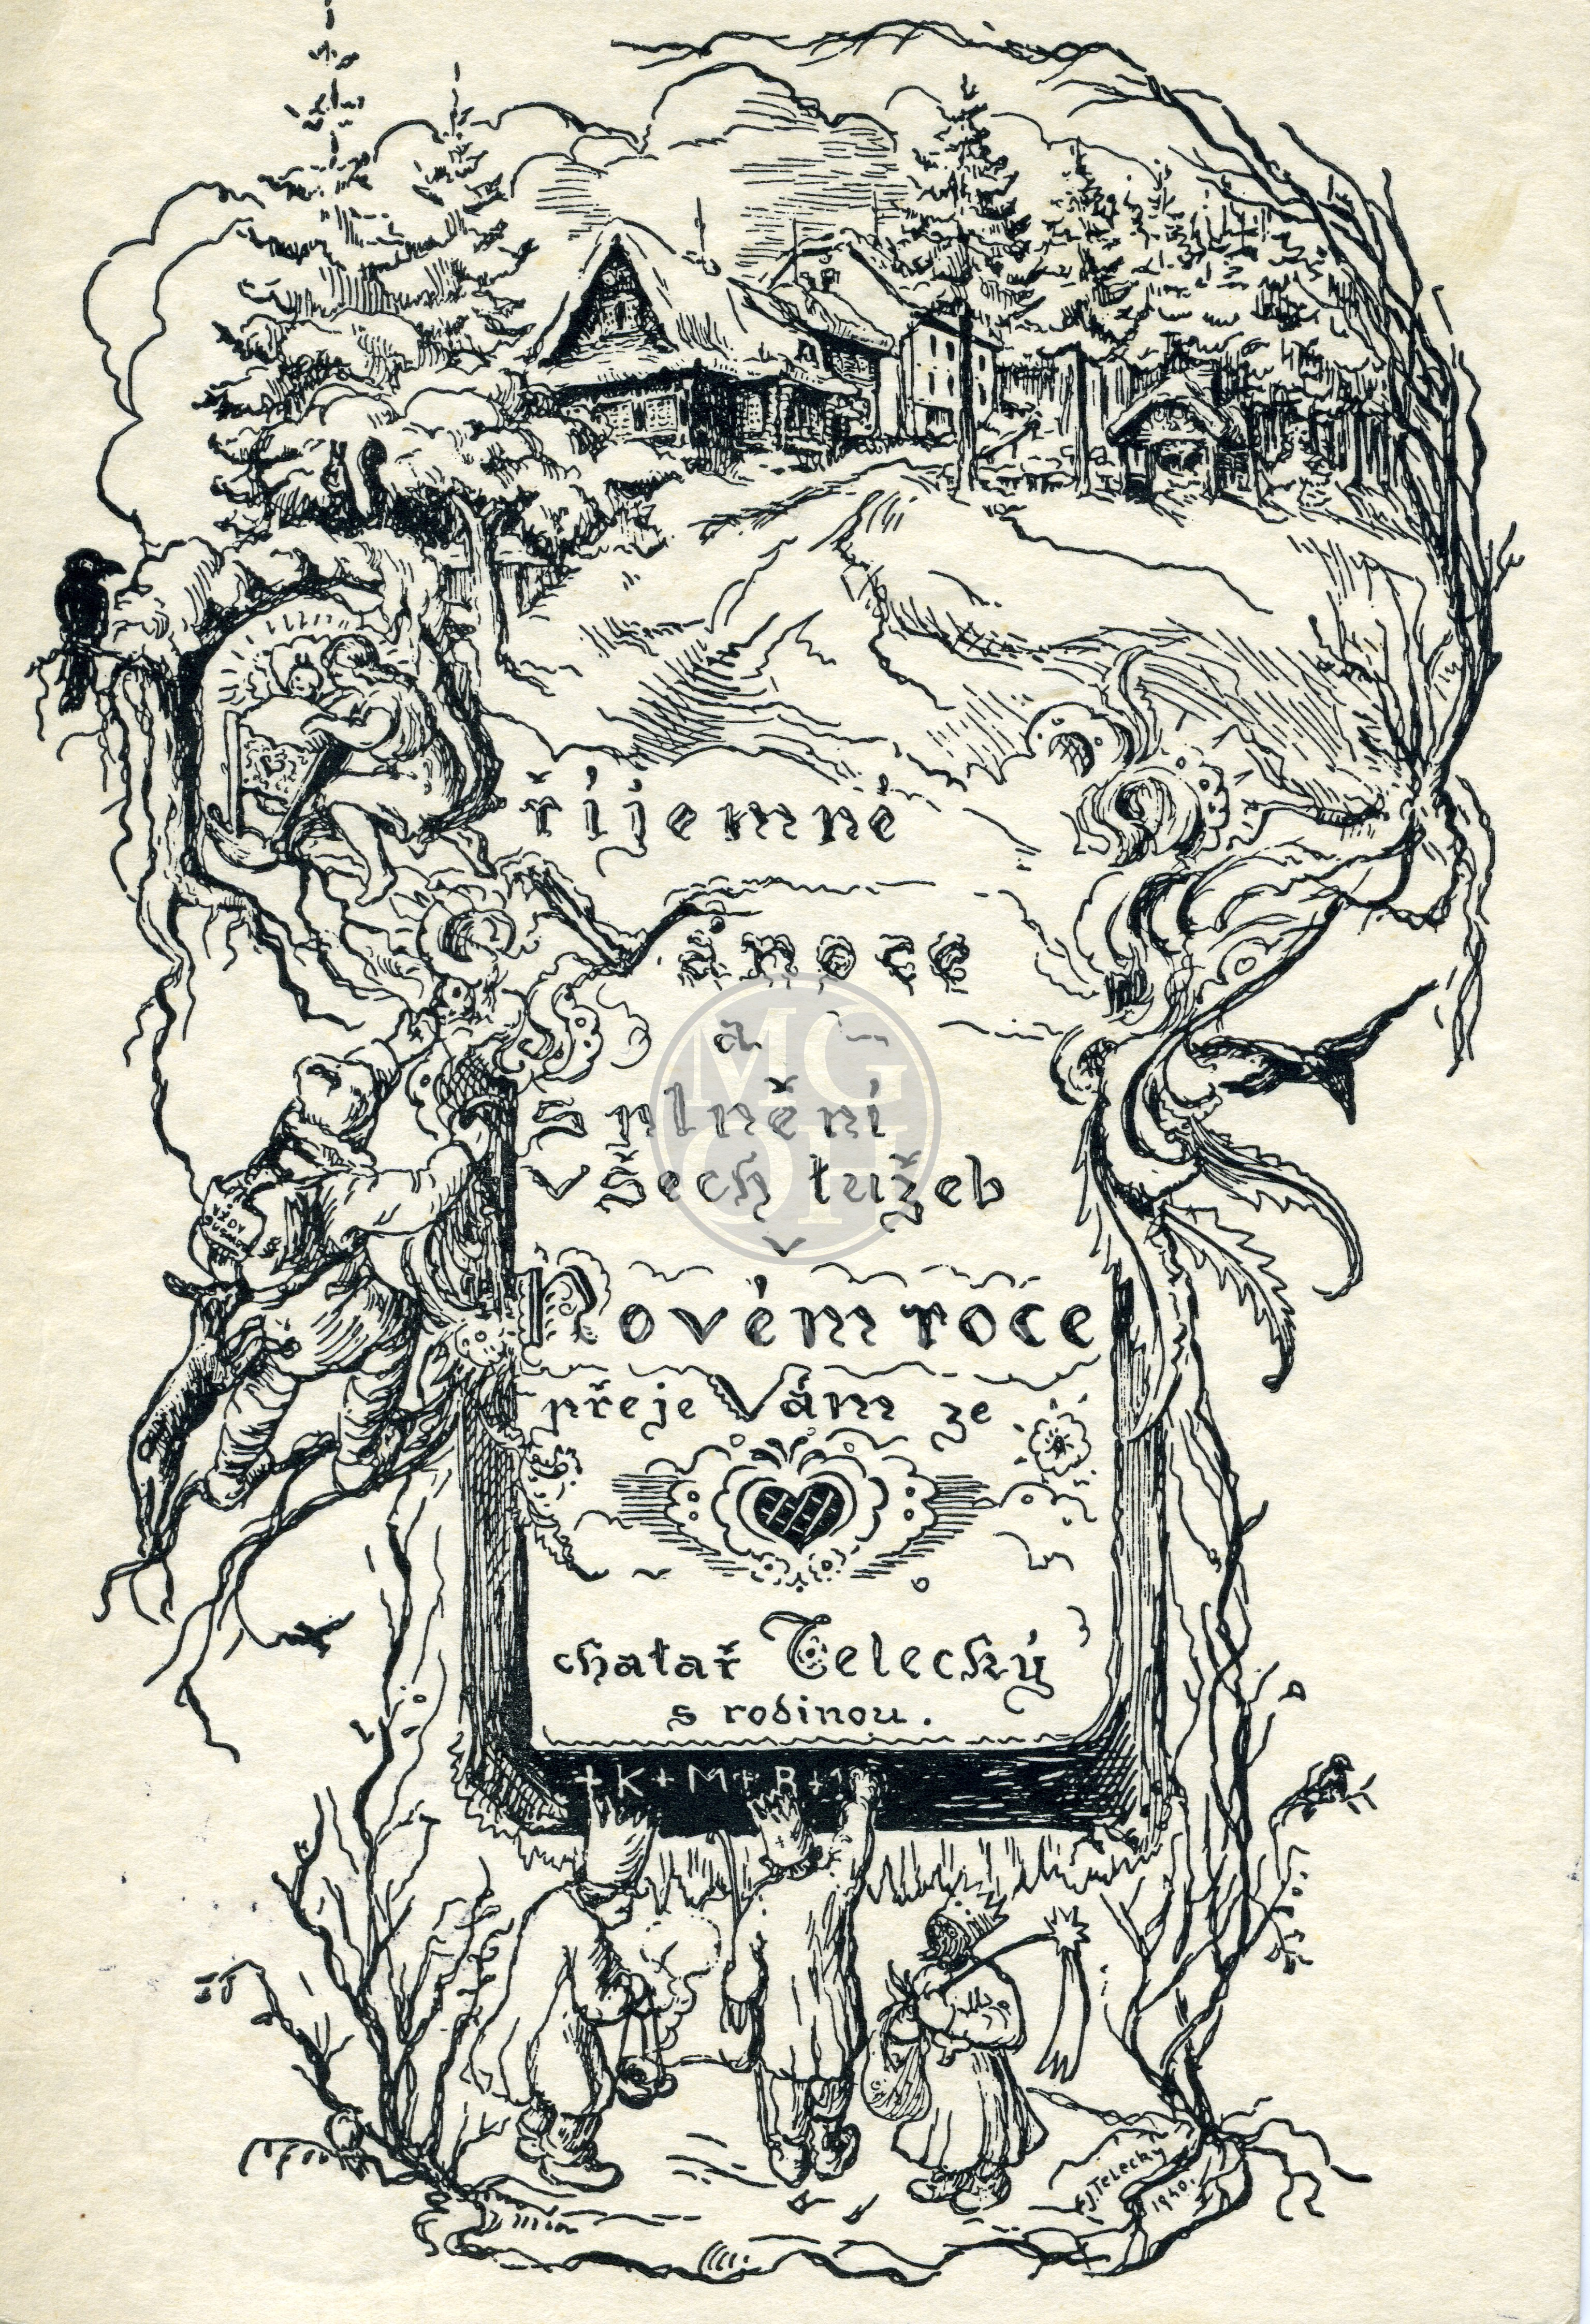 Příjemné
Vánoce
a
splnění
všech tužeb
v
Novém roce
přeje Vám ze
chatař Telecký
s rodinou.
+K+M+B+1
VŽDY
J. TELECKY
1940.
MG
OH